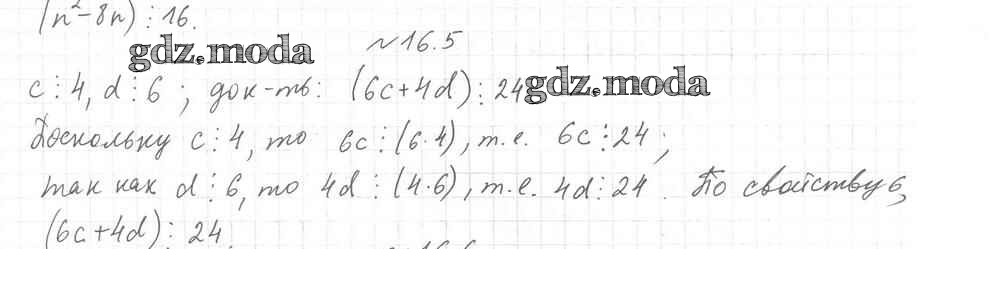 (n²-8n)⋮16.
№16.5
gdz.moda
c⋮4, d⋮6; док-ть: (6c+4d)⋮24
gdz.moda
Поскольку c⋮4, то 6c⋮(6·4), т.е. 6c⋮24;
так как d⋮6, то 4d⋮(4·6), т.е. 4d⋮24. По свойству 6,
(6c+4d)⋮24.